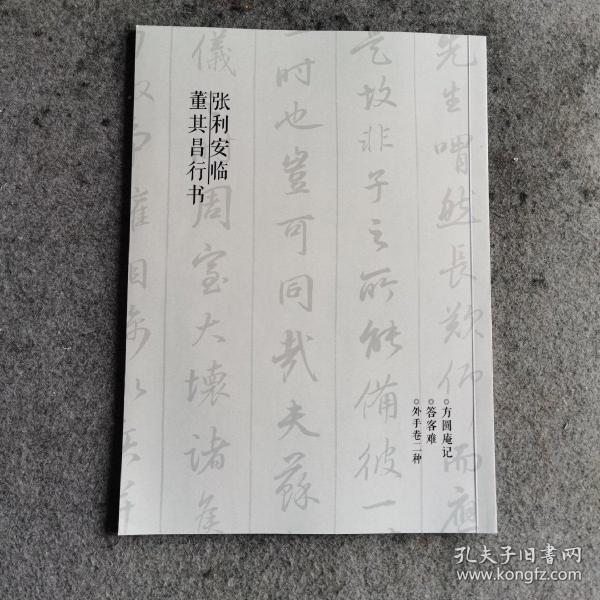 张利安临
董其昌行书
方圆庵记
答客难
外手卷二种
先生喟然長歎仰而應
是故非子之所能備彼一
一时也豈可同哉夫蘇
儀
周室大壞諸矦
孔夫子旧书网
www.kongfz.com